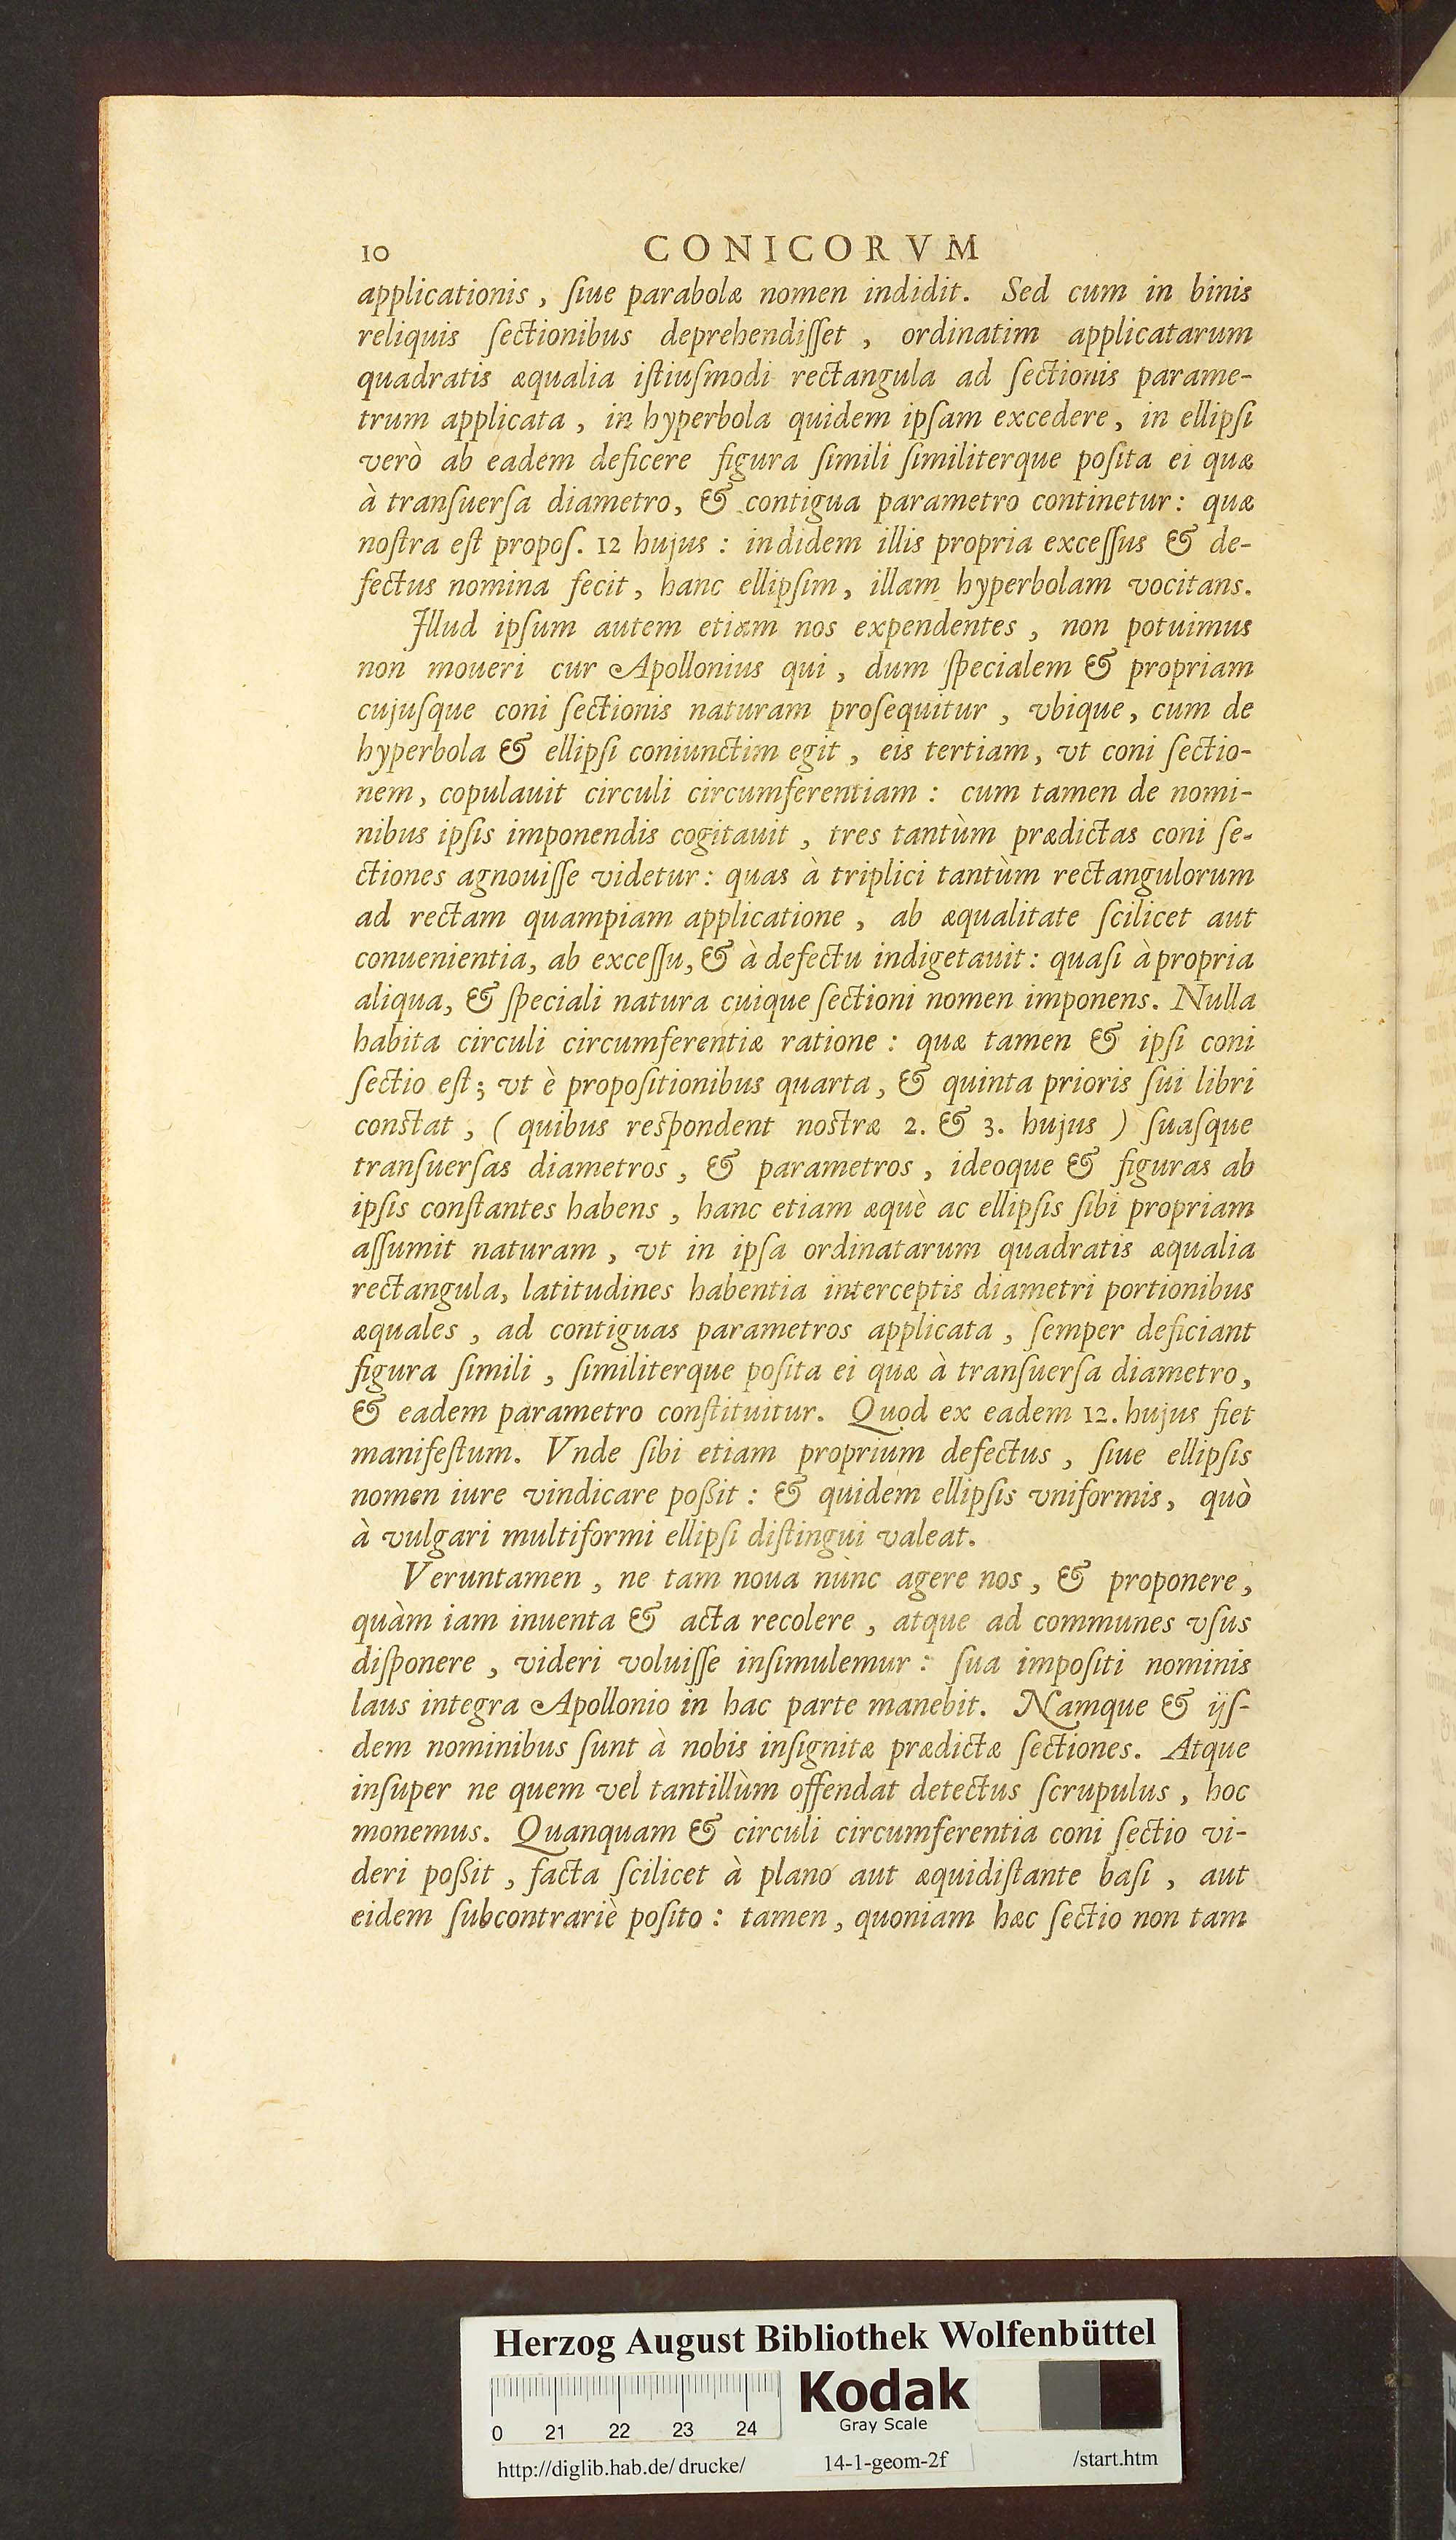 10 CONICORVM
applicationis, ſiue parabolæ nomen indidit. Sed cum in binis
reliquis ſectionibus deprehendiſſet, ordinatim applicatarum
quadratis æqualia iſtiuſmodi rectangula ad ſectionis parame-
trum applicata, in hyperbola quidem ipſam excedere, in ellipſi
verò ab eadem deficere figura ſimili ſimiliterque poſita ei quæ
à tranſuerſa diametro, & contigua parametro continetur: quæ
noſtra eſt propoſ. 12 hujus: indidem illis propria exceſſus & de-
fectus nomina fecit, hanc ellipſim, illam hyperbolam vocitans.
Illud ipſum autem etiam nos expendentes, non potuimus
non moueri cur Apollonius qui, dum ſpecialem & propriam
cujuſque coni ſectionis naturam proſequitur, vbique, cum de
hyperbola & ellipſi coniunctim egit, eis tertiam, vt coni ſectio-
nem, copulauit circuli circumferentiam: cum tamen de nomi-
nibus ipſis imponendis cogitauit, tres tantùm prædictas coni ſe-
ctiones agnouiſſe videtur: quas à triplici tantùm rectangulorum
ad rectam quampiam applicatione, ab æqualitate ſcilicet aut
conuenientia, ab exceſſu, & à defectu indigetauit: quaſi à propria
aliqua, & ſpeciali natura cuique ſectioni nomen imponens. Nulla
habita circuli circumferentiæ ratione: quæ tamen & ipſi coni
ſectio eſt; vt è propoſitionibus quarta, & quinta prioris ſui libri
conſtat, (quibus reſpondent noſtræ 2. & 3. hujus) ſuaſque
tranſuerſas diametros, & parametros, ideoque & figuras ab
ipſis conſtantes habens, hanc etiam æquè ac ellipſis ſibi propriam
aſſumit naturam, vt in ipſa ordinatarum quadratis æqualia
rectangula, latitudines habentia interceptis diametri portionibus
æquales, ad contiguas parametros applicata, ſemper deficiant
figura ſimili, ſimiliterque poſita ei quæ à tranſuerſa diametro,
& eadem parametro conſtituitur. Quod ex eadem 12. hujus fiet
manifeſtum. Vnde ſibi etiam proprium defectus, ſiue ellipſis
nomen iure vindicare poßit: & quidem ellipſis vniformis, quò
à vulgari multiformi ellipſi diſtingui valeat.
Veruntamen, ne tam noua nunc agere nos, & proponere,
quàm iam inuenta & acta recolere, atque ad communes vſus
diſponere, videri voluiſſe inſimulemur: ſua impoſiti nominis
laus integra Apollonio in hac parte manebit. Namque & ijſ-
dem nominibus ſunt à nobis inſignitæ prædictæ ſectiones. Atque
inſuper ne quem vel tantillùm offendat detectus ſcrupulus, hoc
monemus. Quanquam & circuli circumferentia coni ſectio vi-
deri poßit, facta ſcilicet à plano aut æquidiſtante baſi, aut
eidem ſubcontrariè poſito: tamen, quoniam hæc ſectio non tam
Herzog August Bibliothek Wolfenbüttel
0 21 22 23 24
Kodak
Gray Scale
http://diglib.hab.de/drucke/ 14-1-geom-2f /start.htm